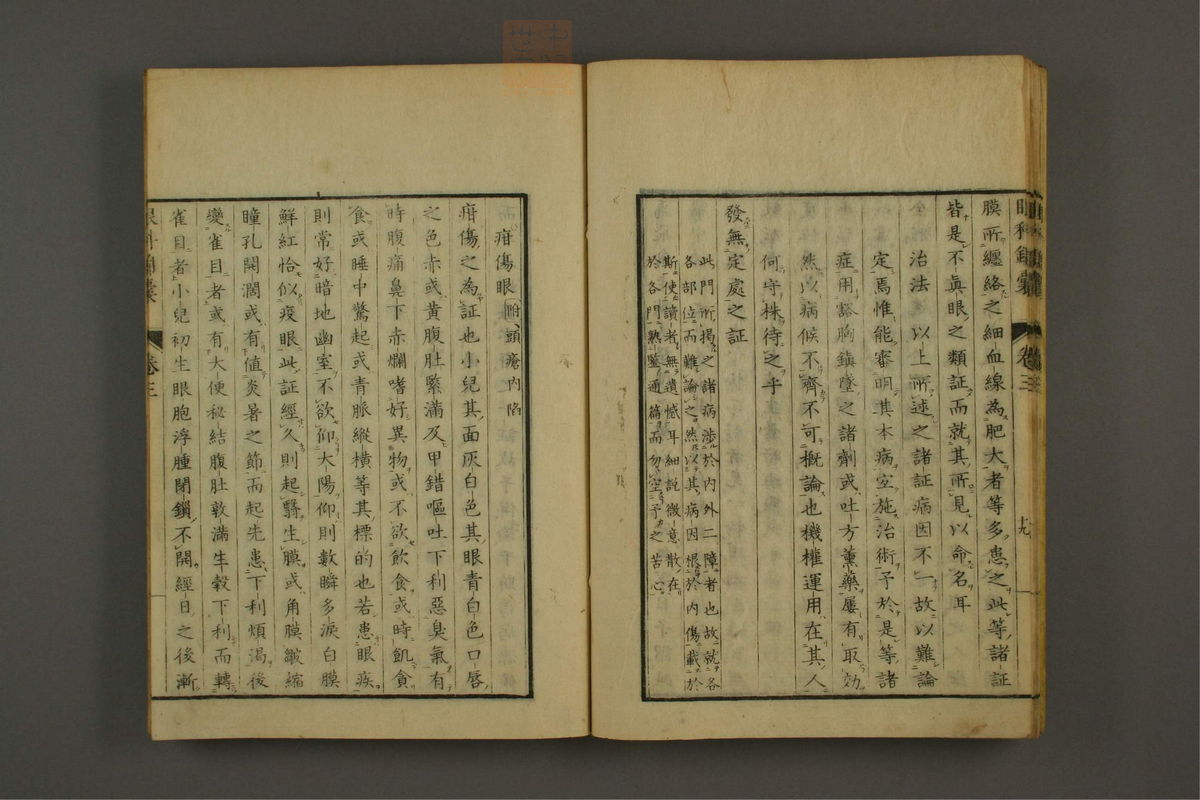 眼科錦囊 卷三 十九
膜所纏絡之細血線為肥大者等多患之此等諸証
皆是不眞眼之類証而就其所見以命名耳
治法 以上所述之諸証病因不一故以難論
定焉惟能審明其本病宜施治術予於是等諸
症用豁胸鎭墜之諸劑或吐方薰藥屢有取効
然以病候不齊不可概論也機權運用在其人
何守株待之乎
發無定處之証
此門所揭之諸病涉於内外二障者也故就各
各部位而難論之然以其病因根於内傷載於
斯使讀者無遺憾耳細説微意散在
於各門熟鑒通篇而勿空予之苦心
疳傷眼 附頭瘡内陷
疳傷之為証也小兒其面灰白色其眼青白色口唇
之色赤或黄腹肚緊滿及甲錯嘔吐下利惡臭氣有
時腹痛鼻下赤爛嗜好異物或不欲飲食或時飢貪
食或睡中驚起或青脈縱横等其標的也若患眼疾
則常好暗地幽室不欲仰大陽仰則數瞬多淚白膜
鮮紅恰似疫眼此証經久則起翳生膜或角膜皺縮
瞳孔開濶或有値炎暑之節而起先患下利煩渴後
變雀目者或有大便秘結腹肚敦滿生穀下利而轉
雀目者小兒初生眼胞浮腫閉鎖不開經日之後漸
眼科錦囊 卷三